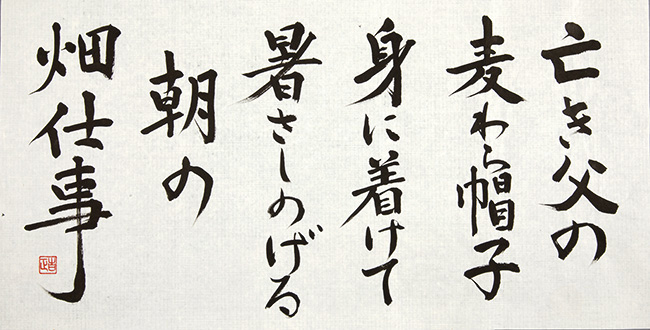 亡き父の
麦わら帽子
身に着けて
暑さしのげる
朝の
畑仕事